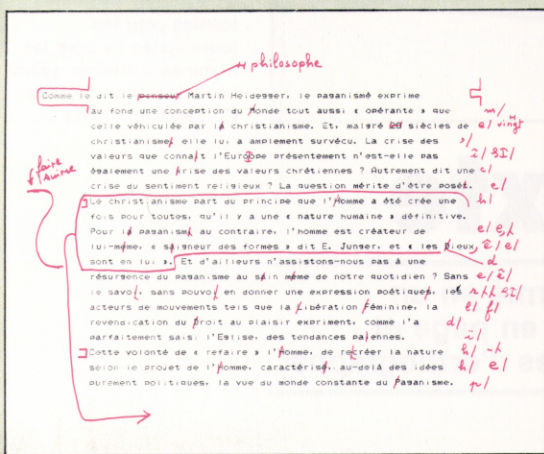 philosophe
Comme le dit le penseur Martin Heidegger, le paganisme exprime
au fond une conception du Monde tout aussi « opérante » que m/
celle véhiculée par la christianisme. Et, malgré 20 siècles de e/ vingt
christianisme, elle lui a amplement survécu. La crise des
valeurs que connait l'Europe présentement n'est-elle pas
également une crise des valeurs chrétiennes ? Autrement dit une c/
faire suivre
crise du sentiment religieux ? La question mérite d'être posée. e/
Le christianisme part du principe que l'Homme a été crée une h/
fois pour toutes, qu'il y a une « nature humaine » définitive.
Pour le paganisme au contraire, l'homme est créateur de
lui-même, « seigneur des formes » dit E. Junger, et « les Dieux
sont en lui ». Et d'ailleurs n'assistons-nous pas à une d
résurgence du paganisme au sein même de notre quotidien ? Sans
le savoir, sans pouvoir en donner une expression poétique, les
acteurs de mouvements tels que la Libération Féminine, la
revendication du Droit au plaisir expriment, comme l'a d/
parfaitement saisi l'Eglise, des tendances paiennes.
Cette volonté de « refaire » l'Homme, de recréer la nature
selon le projet de l'Homme, caractérise, au-delà des idées h/ e/
purement politiques, la vue du monde constante du Paganisme. p/